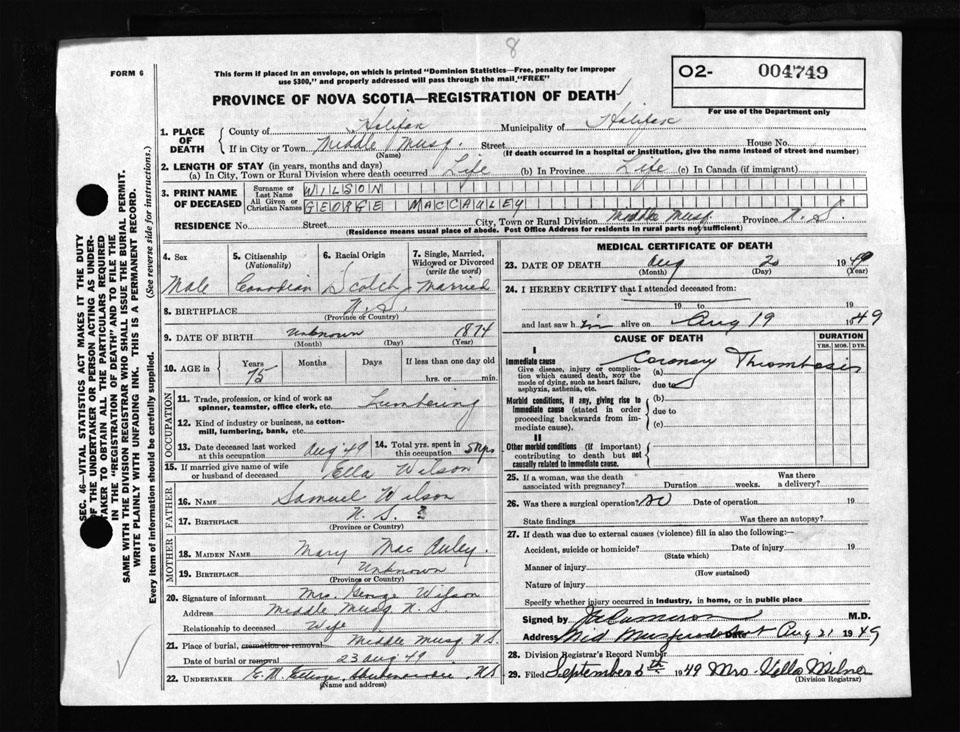 8
FORM 6
This form if placed in an envelope, on which is printed "Dominion Statistics—Free, penalty for improper
use $300," and properly addressed will pass through the mail "FREE"
O2- 004749
For use of the Department only
PROVINCE OF NOVA SCOTIA—REGISTRATION OF DEATH
1. PLACE OF DEATH
County of Halifax Municipality of Halifax
If in City or Town Middle Musq. Street House No.
(Name) (If death occurred in a hospital or institution, give the name instead of street and number)
2. LENGTH OF STAY (in years, months and days)
(a) In City, Town or Rural Division where death occurred Life (b) In Province Life (c) In Canada (if immigrant)
3. PRINT NAME OF DECEASED
Surname or Last Name WILSON
All Given or Christian Names GEORGE MACCAULEY
RESIDENCE No. Street City, Town or Rural Division Middle Musq Province N.S.
(Residence means usual place of abode. Post Office Address for residents in rural parts not sufficient)
4. Sex Male
5. Citizenship (Nationality) Canadian
6. Racial Origin Scotch
7. Single, Married, Widowed or Divorced (write the word) Married
8. BIRTHPLACE N.S.
(Province or Country)
9. DATE OF BIRTH Unknown 1874
(Month) (Day) (Year)
10. AGE in Years 75 Months Days If less than one day old
hrs. or min.
OCCUPATION
11. Trade, profession, or kind of work as
spinner, teamster, office clerk, etc. Lumbering
12. Kind of industry or business, as cotton-
mill, lumbering, bank, etc.
13. Date deceased last worked at this occupation Aug 49
14. Total yrs. spent in this occupation 50 yrs
15. If married give name of wife
or husband of deceased Ella Wilson
FATHER
16. NAME Samuel Wilson
17. BIRTHPLACE N.S.
(Province or Country)
MOTHER
18. MAIDEN NAME Mary MacAuley.
19. BIRTHPLACE Unknown
(Province or Country)
20. Signature of informant Mrs. George Wilson
Address Middle Musq N.S
Relationship to deceased Wife
21. Place of burial, cremation or removal Middle Musq N.S.
Date of burial or removal 23 aug 49
22. UNDERTAKER E.M. N.S
(Name and address)
MEDICAL CERTIFICATE OF DEATH
23. DATE OF DEATH Aug 20 1949
(Month) (Day) (Year)
24. I HEREBY CERTIFY that I attended deceased from:
19 to 19
and last saw him alive on Aug 19 1949
CAUSE OF DEATH
DURATION
YRS. MOS. DYS.
I
Immediate cause
Give disease, injury or complica-
tion which caused death, NOT the
mode of dying, such as heart failure,
asphyxia, asthenia, etc.
(a) Coronary Thrombosis
due to
Morbid conditions, if any, giving rise to
immediate cause (stated in order
proceeding backwards from im-
mediate cause).
(b)
due to
(c)
II
Other morbid conditions (If important)
contributing to death but not
causally related to immediate cause.
25. If a woman, was the death
associated with pregnancy? Duration weeks. Was there
a delivery?
26. Was there a surgical operation? No Date of operation 19
State findings Was there an autopsy?
27. If death was due to external causes (violence) fill in also the following:—
Accident, suicide or homicide? Date of injury 19
(State which)
Manner of injury
(How sustained)
Nature of injury
Specify whether injury occurred in industry, in home, or in public place
Signed by M.D.
Address Mid Musquodoboit Date Aug 21 1949
28. Division Registrar's Record Number
29. Filed September 5th 1949 Mrs. Milne
(Division Registrar)
SEC. 46—VITAL STATISTICS ACT MAKES IT THE DUTY
OF THE UNDERTAKER OR PERSON ACTING AS UNDER-
TAKER TO OBTAIN ALL THE PARTICULARS REQUIRED
IN THE "REGISTRATION OF DEATH" AND TO FILE THE
SAME WITH THE DIVISION REGISTRAR WHO SHALL ISSUE THE BURIAL PERMIT.
WRITE PLAINLY WITH UNFADING INK. THIS IS A PERMANENT RECORD.
Every item of information should be carefully supplied. (See reverse side for instructions.)